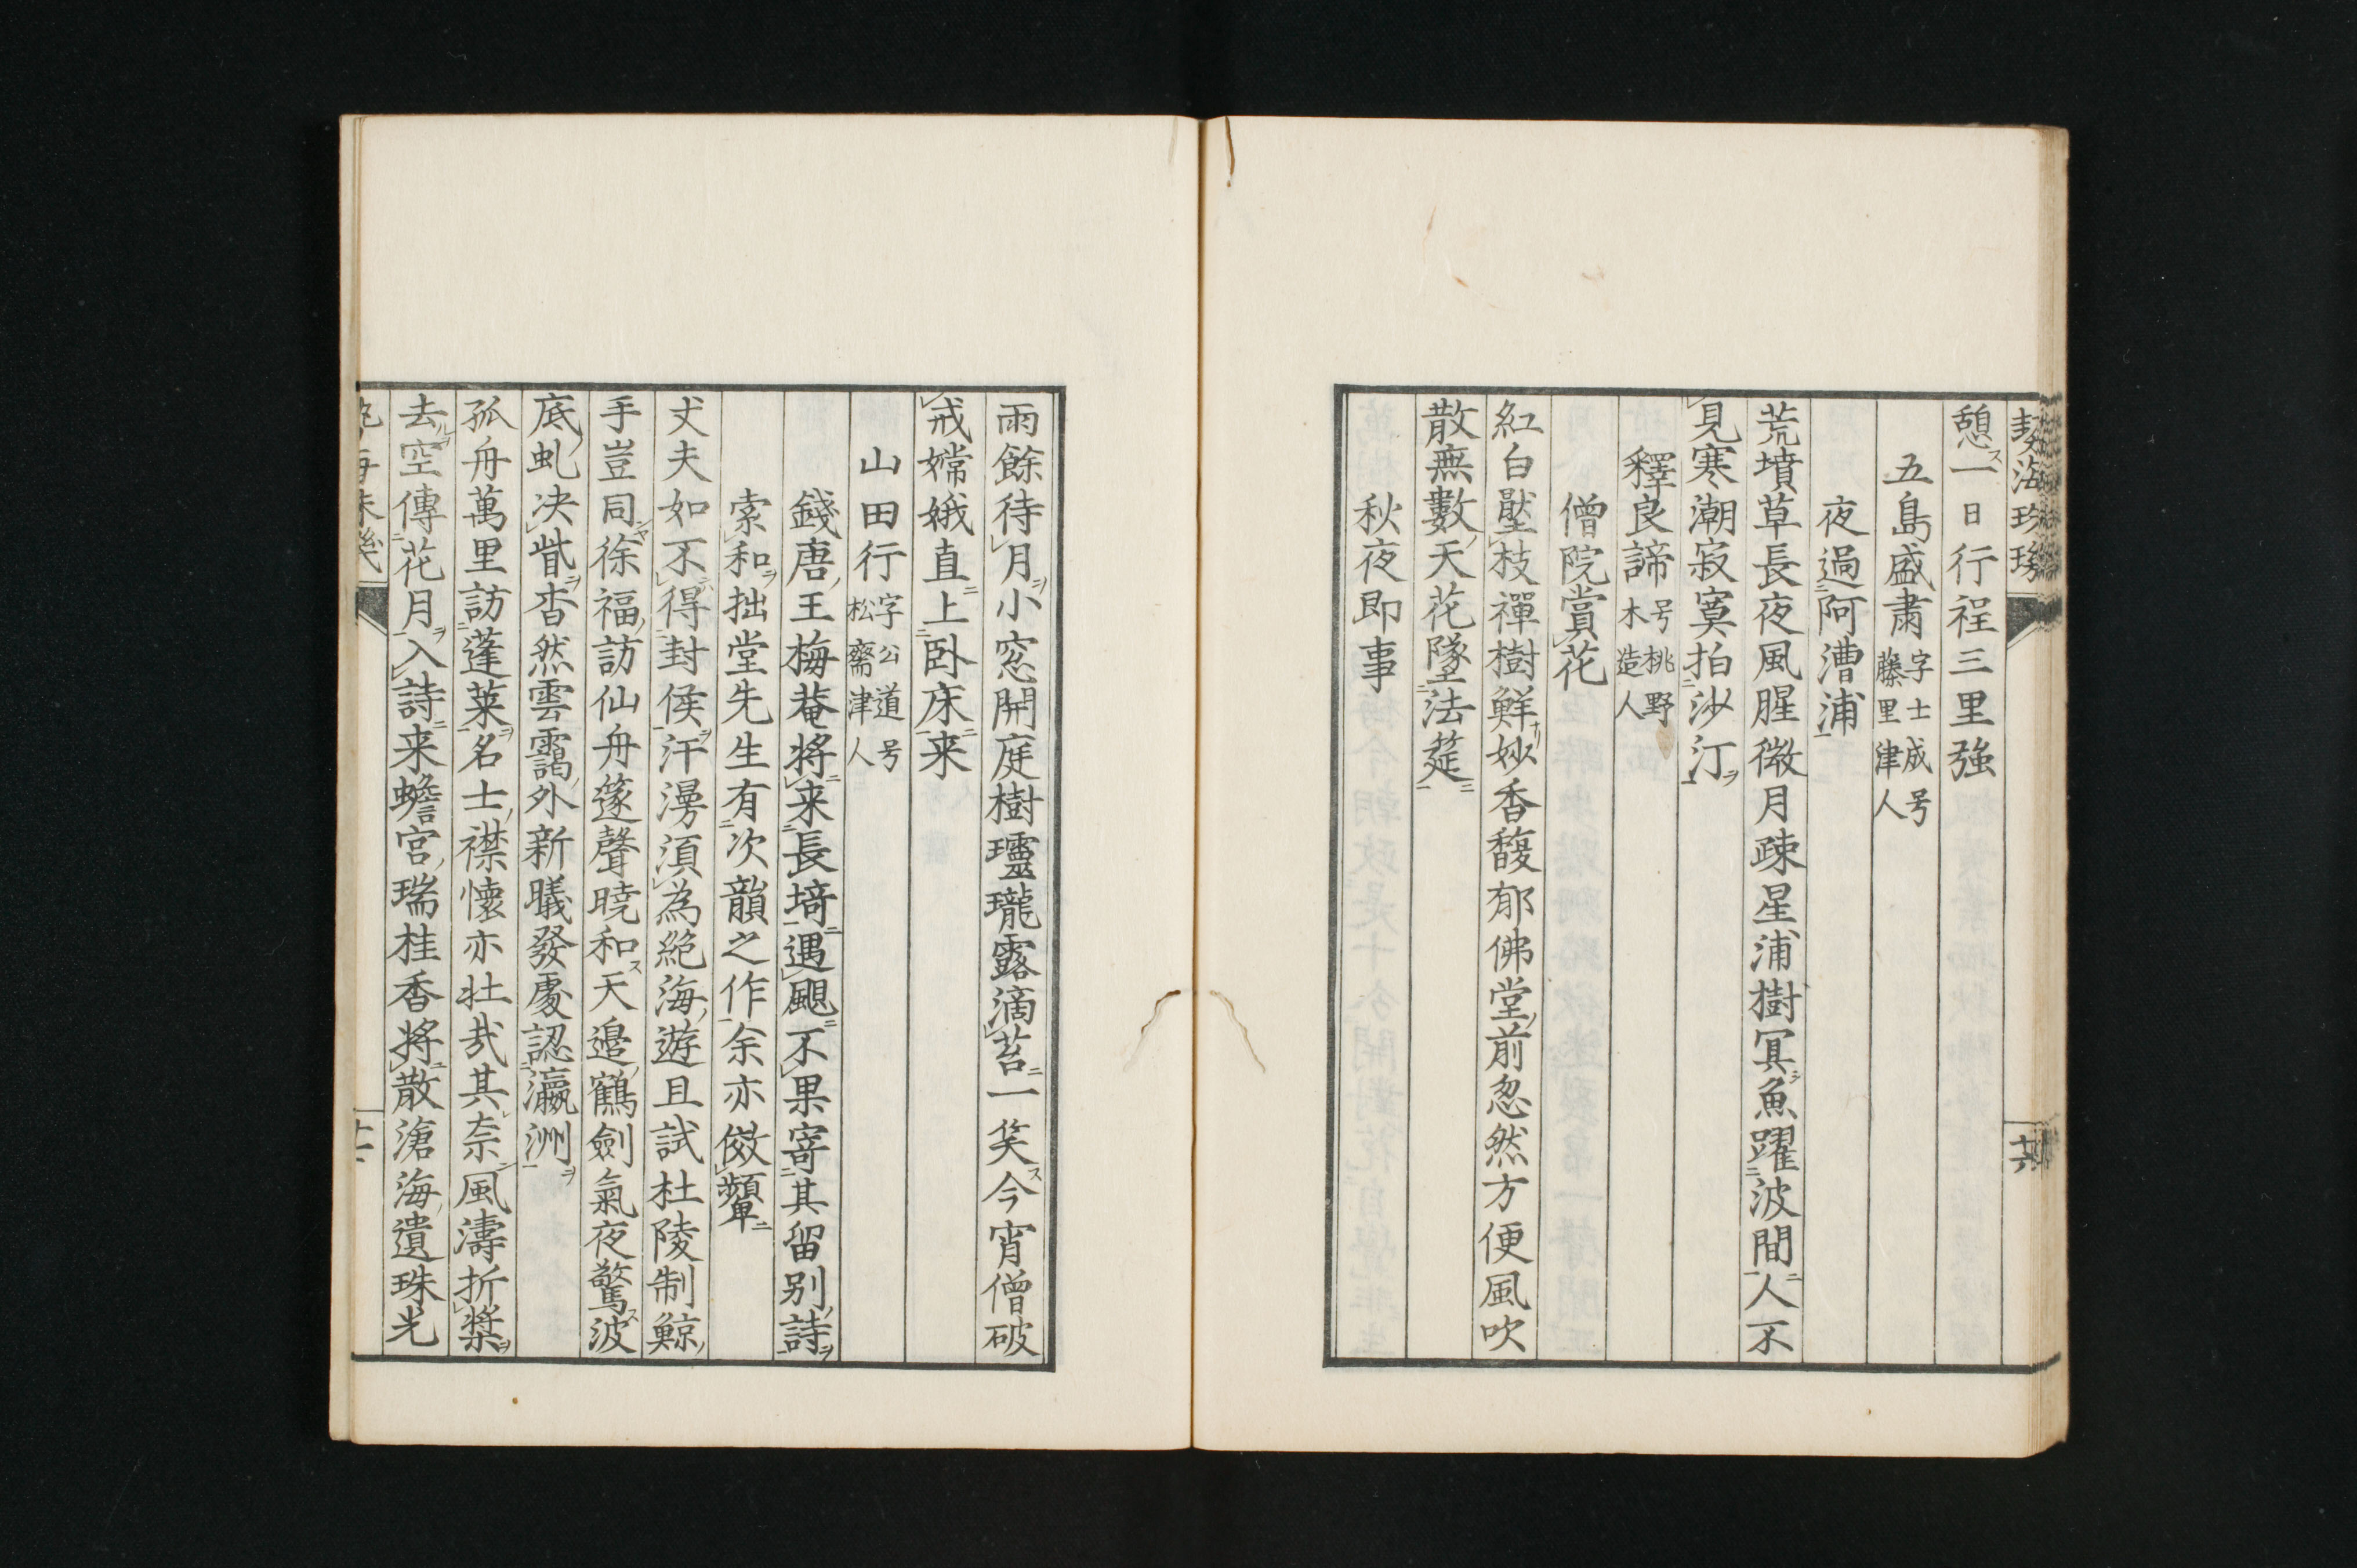 憩一日行程三里強
五島盛肅 字士成号藤里津人
夜過阿漕浦
荒墳草長夜風腥微月疎星浦樹冥魚躍波間人不
見寒潮寂寞拍沙汀
釋良諦 号桃野木造人
僧院賞花
紅白壓枝禪樹鮮妙香馥郁佛堂前忽然方便風吹
散無數天花墜法筵
秋夜即事
雨餘待月小窓開庭樹瓏露滴苔一笑今宵僧破
戒嫦娥直上卧床来
山田行 字公道号松齋津人
錢唐王梅菴将来長埼遇颶不果寄其留别詩
索和拙堂先生有次韻之作余亦傚顰
丈夫如不得封侯汗漫須為絶海遊且試杜陵制鯨
手豈同徐福訪仙舟篴聲曉和天邉鶴劍氣夜驚波
底虬决眥杳然雲靄外新曦發處認瀛洲
孤舟萬里訪蓬莱名士襟懐亦壮㢤其奈風濤折槳
去空傳花月入詩来蟾宮瑞桂香将散滄海遺珠光